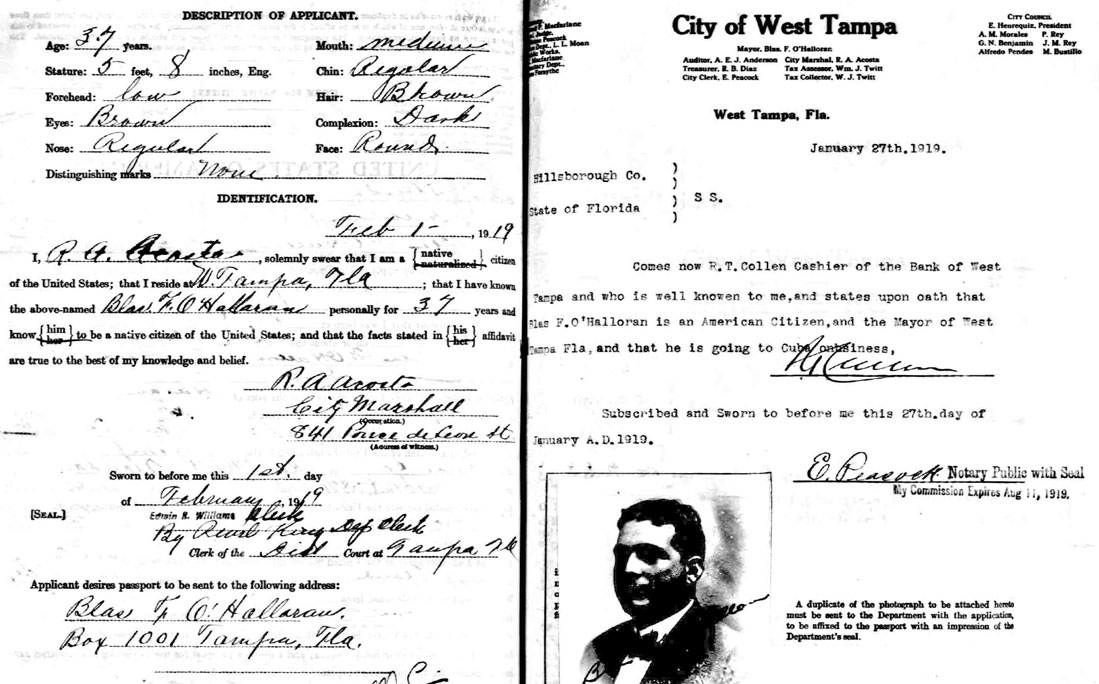 DESCRIPTION OF APPLICANT.
Age: 37 years.
Mouth: medium
Stature: 5 feet, 8 inches, Eng.
Chin: Regular
Forehead: low
Hair: Brown
Eyes: Brown
Complexion: Dark
Nose: Regular
Face: Round.
Distinguishing marks None
IDENTIFICATION.
Feb 1-, 1919
I, R. A. Acosta, solemnly swear that I am a {native naturalized} citizen
of the United States; that I reside at W. Tampa, Fla; that I have known
the above-named Blas. F. O'Halloran personally for 37 years and
know {him her} to be a native citizen of the United States; and that the facts stated in {his her} affidavit
are true to the best of my knowledge and belief.
R. A Acosta
City Marshall
(Occupation.)
841 Ponce de Leon St
(Address of witness.)
Sworn to before me this 1st. day
of February, 1919
[SEAL.]
Edwin R. Williams Clerk
By King Dep Clerk
Clerk of the Dist Court at Tampa Fla
Applicant desires passport to be sent to the following address:
Blas F. O'Halloran.
Box 1001 Tampa, Fla.
Macfarlane
Judge.
Peacock
Dept., L. L. Moan
Works.
Macfarlane
Dept.,
Forsythe
City of West Tampa
Mayor, Blas. F. O'Halloran.
Auditor, A. E. J. Anderson City Marshal, R. A. Acosta
Treasurer, R. B. Diaz Tax Assessor, Wm. J. Twitt
City Clerk, E. Peacock Tax Collector, W. J. Twitt
CITY COUNCIL
E. Henrequiz, President
A. M. Morales P. Rey
G. N. Benjamin J. M. Rey
Alfredo Pendes M. Bustillo
West Tampa, Fla.
January 27th.1919.
Hillsborough Co. )
)
) S S.
State of Florida )
Comes now R.T.Collen Cashier of the Bank of West
Tampa and who is well known to me,and states upon oath that
Blas F.O'Halloran is an American Citizen,and the Mayor of West
Tampa Fla,and that he is going to Cuba onbusiness,
Subscribed and Sworn to before me this 27th.day of
January A.D.1919.
E. Peacock Notary Public with Seal
My Commission Expires Aug 11, 1919.
A duplicate of the photograph to be attached hereto
must be sent to the Department with the application,
to be affixed to the passport with an impression of the
Department's seal.